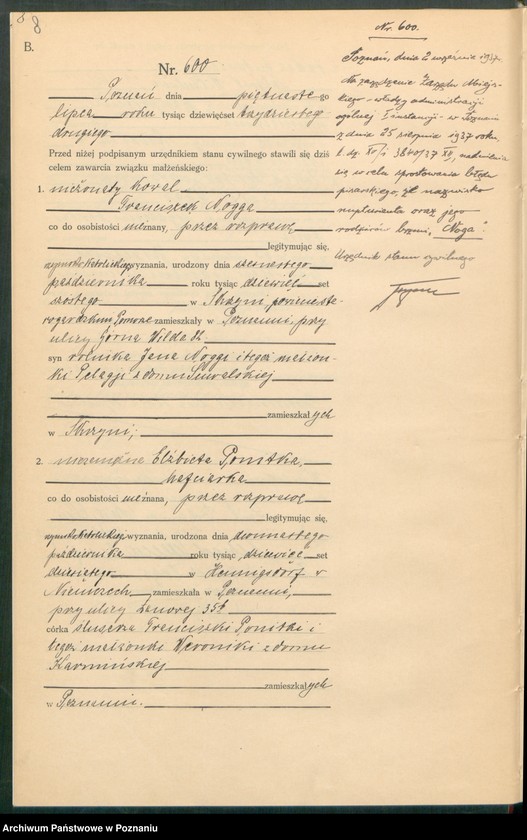 8
B.
Nr. 600
Poznań dnia piętnastego
lipca roku tysiąc dziewięćset trzydziestego
drugiego
Przed niżej podpisanym urzędnikiem stanu cywilnego stawili się dziś
celem zawarcia związku małżeńskiego:
1. nieżonaty Kowal
Franciszek Nogga
co do osobistości nieznany, przez rozprawę
legitymując się,
rzymsko katolickiego wyznania, urodzony dnia
października roku tysiąc dziewięć set
szóstego w powiecie
zamieszkały w Poznaniu, przy
ulicy Górna Wilda 82
syn rolnika Jana Nogga i tegoż małżon-
ki Pelagji z domu
zamieszkałych
w
2. niezamężna Elżbieta
hafciarka
co do osobistości nieznana, przez rozprawę
legitymując się,
rzymsko katolickiego wyznania, urodzona dnia
października roku tysiąc dziewięć set
dziesiątego w Hennigsdorf w
Niemczech zamieszkała w Poznaniu,
przy ulicy Łanowej
córka ślusarza Franciszki i
tegoż małżonki Weroniki z domu
zamieszkałych
w Poznaniu.
Nr. 600.
Poznań, dnia 2 września 1937.
Na zarządzenie Zarządu Miejs-
kiego - władzy administracji
ogólnej I instancji - w Poznaniu
z dnia 25 sierpnia 1937 roku,
się w celu sprostowania błędu
pisarskiego, że nazwisko
oraz jego
rodziców brzmi "Noga".
Urzędnik stanu cywilnego
Archiwum Państwowe w Poznaniu